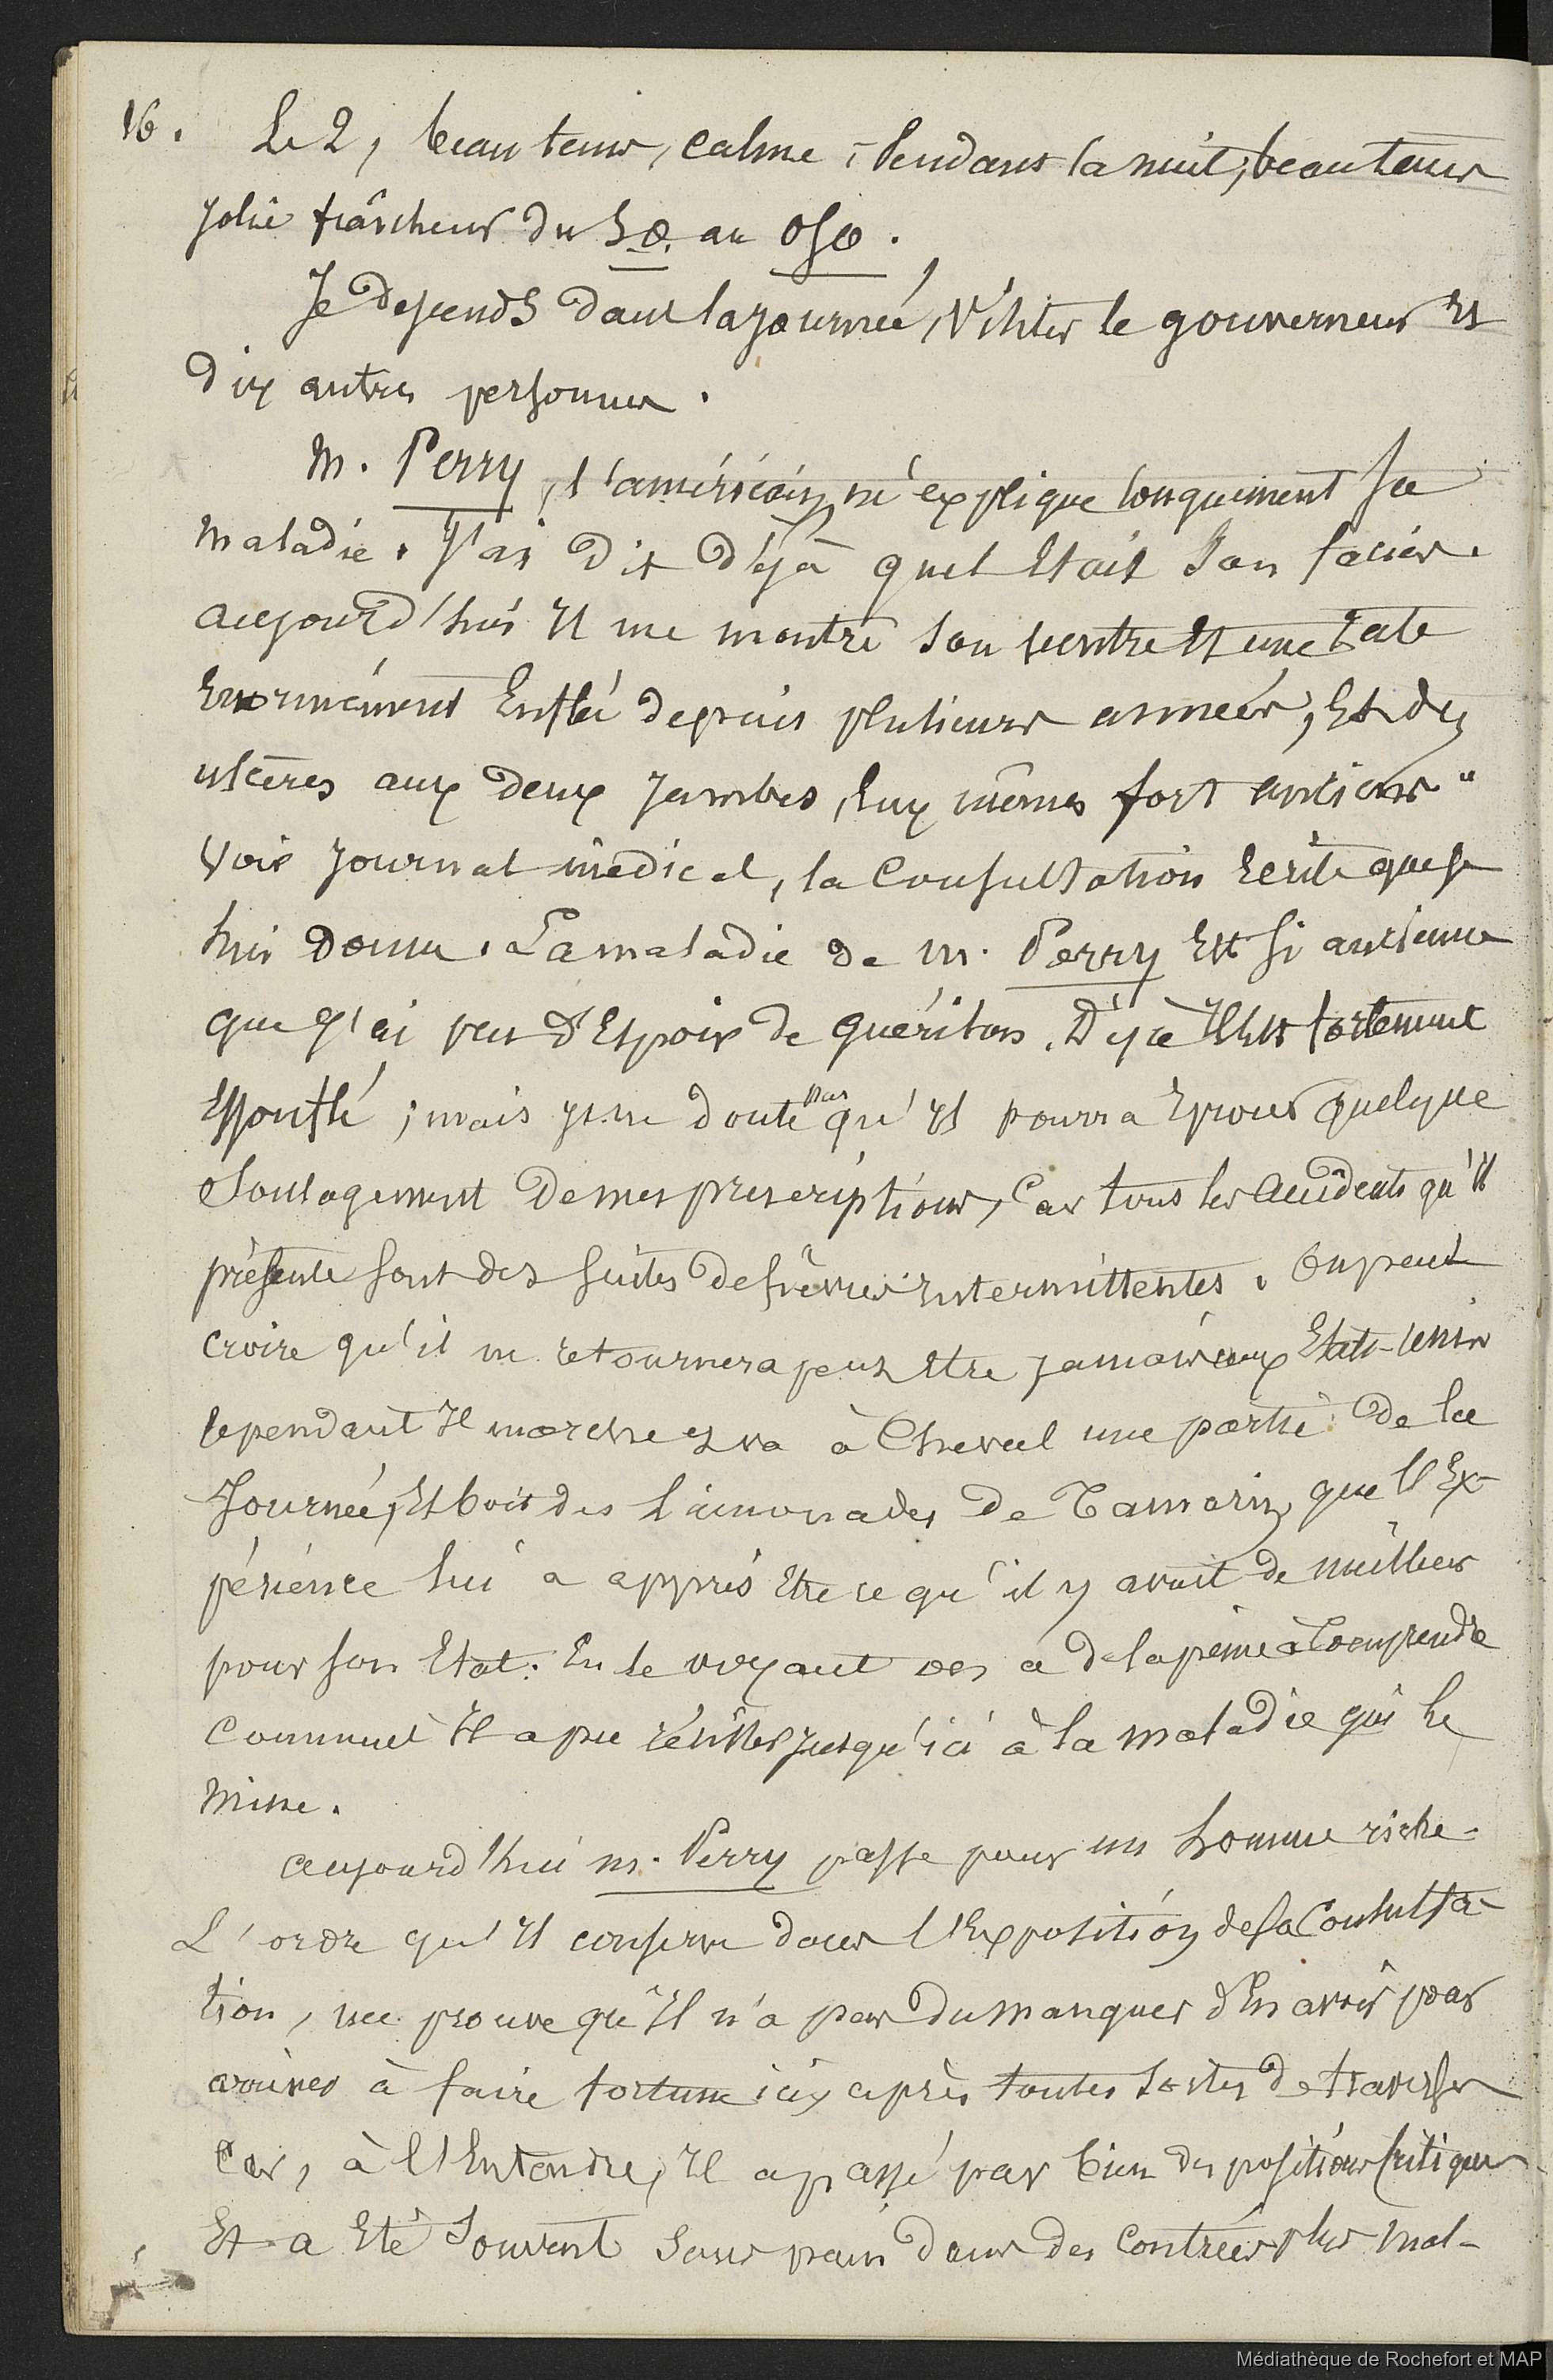 16. Le 2, beau tems, calme, Pendant la nuit, beau tems
jolie fraîcheur du SO. au OSO.
Je descends dans la journée, visiter le gouverneur et
dix autres personnes.
M. Perry, l'américain, m'explique longuement sa
maladie. J'ai dit déjà quel était son faciès.
aujourd'hui il me montre son ventre et une rate
Enormément Enflée depuis plusieurs années, Et des
ulcères aux deux jambes, Eux mêmes fort anciens "
Voir journal médical, la Consultation Ecrite que je
lui donne. La maladie de M. Perry Est si ancienne
que j'ai peu d'Espoir de guérison. Déjà Il Est fortement
Essouflé ; mais je ne doute pas qu'il pourra Eprouver quelque
Soulagement de mes prescriptions, Car tous les accidents qu'il
présente sont des suites de fièvres intermittentes. On peut
croire qu'il ne retournera peut Etre jamais aux Etats-Unis
Cependant Il marche et va à Cheval une partie de la
Journée, Et boit des Limonades de Tamarin que l'Ex-
périence lui a appris Etre ce qu'il y avait de meilleur
pour son Etat. En le voyant on a de la peine à Comprendre
Comment Il a pu résister jusqu'ici à la maladie qui le
mine.
aujourd'hui M. Perry passe pour un homme riche.
L'ordre qu'il conserve dans l'Exposition de sa Consulta-
tion, me prouve qu'Il n'a pas du manquer d'En avoir pour
arriver à faire fortune ici, après toutes sortes de traverses
Car, à l'Entendre, Il a passé par bien des positions Critiques
Et a Eté Souvent Sans pain dans des Contrées plus mal-
Médiathèque de Rochefort et MAP